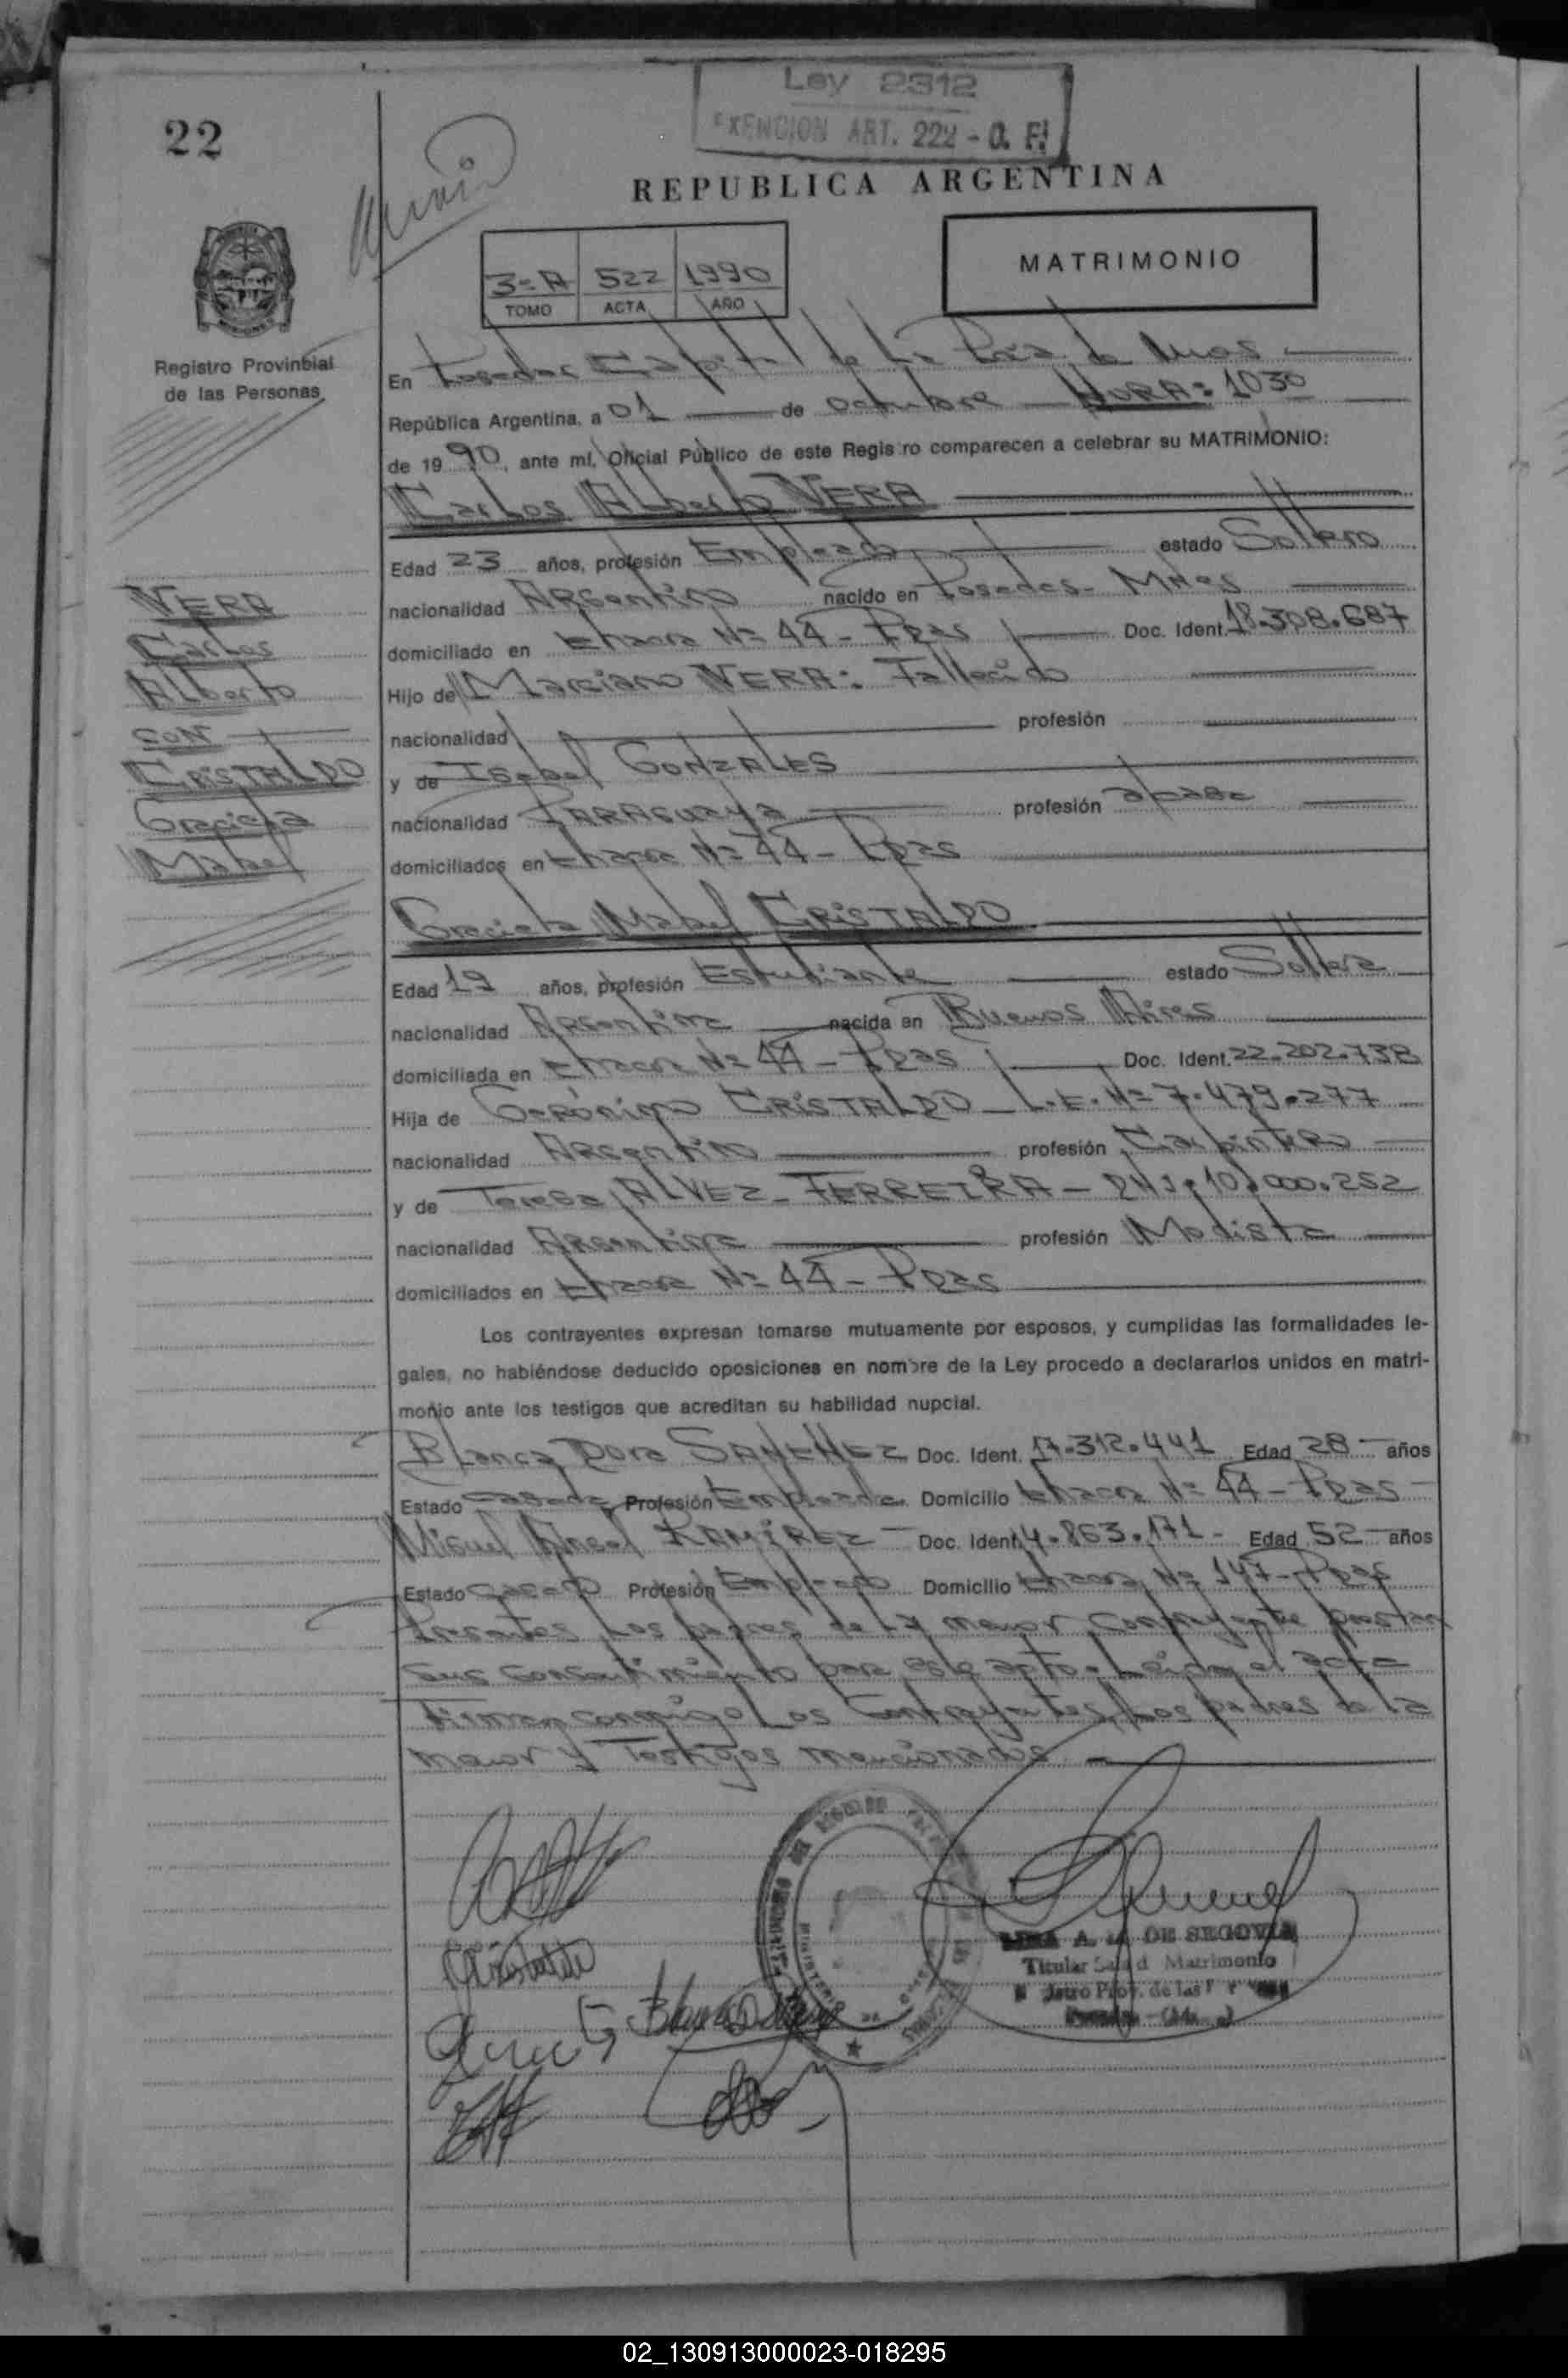 Ley 2312
EXENCION ART. 222 - O. F.
22
REPUBLICA ARGENTINA
3º A 522 1990
TOMO ACTA AÑO
MATRIMONIO
Registro Provincial
de las Personas
En Posadas Capital de La Pcia de Mnes
República Argentina, a 01 de octubre HORA: 1030
de 1990, ante mí, Oficial Público de este Registro comparecen a celebrar su MATRIMONIO:
Carlos Alberto VERA
Edad 23 años, profesión Empleado estado Soltero
nacionalidad Argentino nacido en Posadas - Mnes
domiciliado en Chacra Nº 44 - Pdas Doc. Ident. 18.308.687
Hijo de Marciano VERA: Fallecido
nacionalidad profesión
y de Isabel GONZALES
nacionalidad PARAGUAYA profesión
domiciliados en Chacra Nº 44 - Pdas
VERA
Carlos
Alberto
CON
CRISTALDO
Graciela
Mabel
Graciela Mabel CRISTALDO
Edad 19 años, profesión Estudiante estado Soltera
nacionalidad Argentina nacida en Buenos Aires
domiciliada en Chacra Nº 44 - Pdas Doc. Ident. 22.202.738
Hija de Gerónimo CRISTALDO - L.E. Nº 7.479.277
nacionalidad Argentino profesión Carpintero
y de Teresa ALVEZ - FERREIRA - DNI, 10.000.252
nacionalidad Argentina profesión Modista
domiciliados en Chacra Nº 44 - Pdas
Los contrayentes expresan tomarse mutuamente por esposos, y cumplidas las formalidades le-
gales, no habiéndose deducido oposiciones en nombre de la Ley procedo a declararlos unidos en matri-
monio ante los testigos que acreditan su habilidad nupcial.
Blanca Dora SANCHEZ Doc. Ident. 17.312.441 Edad 28 años
Estado casada Profesión Empleada Domicilio Chacra Nº 44 - Pdas
Miguel Angel RAMIREZ - Doc. Ident. 4.863.171 - Edad 52 años
Estado casado Profesión Empleado Domicilio Chacra Nº 147 - Pdas
Presentes Los padres de La menor contrayente prestan
sus consentimiento para este acto. Leída el acta
Firman conmigo Los Contrayentes, Los padres de la
menor y Testigos mencionados
A. DE SEGOVIA
Titular Matrimonio
Prov. de las
02_130913000023-018295